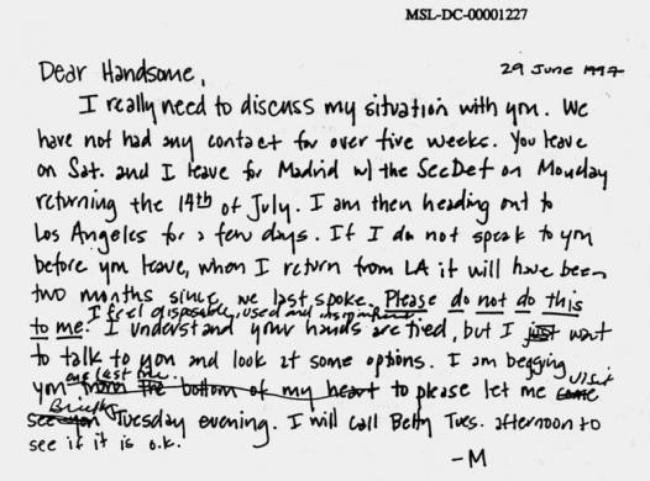 MSL-DC-00001227
29 June 1997
Dear Handsome,
I really need to discuss my situation with you. We
have not had any contact for over five weeks. You leave
on Sat. and I leave for Madrid w/ the SecDef on Monday
returning the 14th of July. I am then heading out to
Los Angeles for a few days. If I do not speak to you
before you leave, when I return from LA it will have been
two months since we last spoke. Please do not do this
I feel disposable, used and insignificant.
to me. I understand your hands are tied, but I just want
to talk to you and look at some options. I am begging
one last time. visit
you from the bottom of my heart to please let me come
Briefly
see you Tuesday evening. I will call Betty Tues. afternoon to
see if it is o.k.
-M